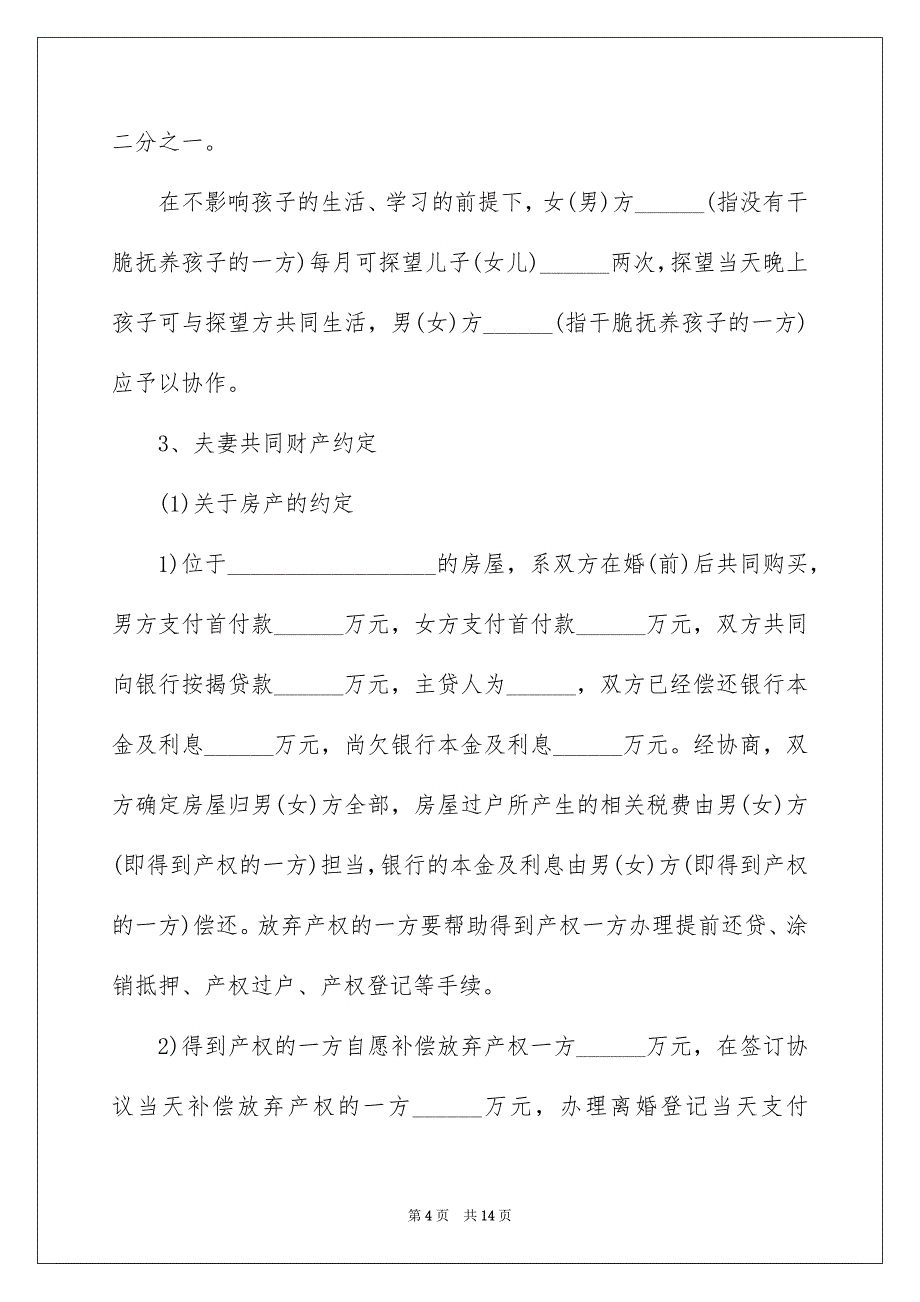 二分之一。
在不影响孩子的生活、学习的前提下，女(男)方______(指没有干
脆抚养孩子的一方)每月可探望儿子(女儿)______两次，探望当天晚上
孩子可与探望方共同生活，男(女)方______(指干脆抚养孩子的一方)
应予以协作。
3、夫妻共同财产约定
(1)关于房产的约定
1)位于__________________的房屋，系双方在婚(前)后共同购买，
男方支付首付款______万元，女方支付首付款______万元，双方共同
向银行按揭贷款______万元，主贷人为______，双方已经偿还银行本
金及利息______万元，尚欠银行本金及利息______万元。经协商，双
方确定房屋归男(女)方全部，房屋过户所产生的相关税费由男(女)方
(即得到产权的一方)担当，银行的本金及利息由男(女)方(即得到产权
的一方)偿还。放弃产权的一方要帮助得到产权一方办理提前还贷、涂
销抵押、产权过户、产权登记等手续。
2)得到产权的一方自愿补偿放弃产权一方______万元，在签订协
议当天补偿放弃产权的一方______万元，办理离婚登记当天支付
第 4 页 共 14 页